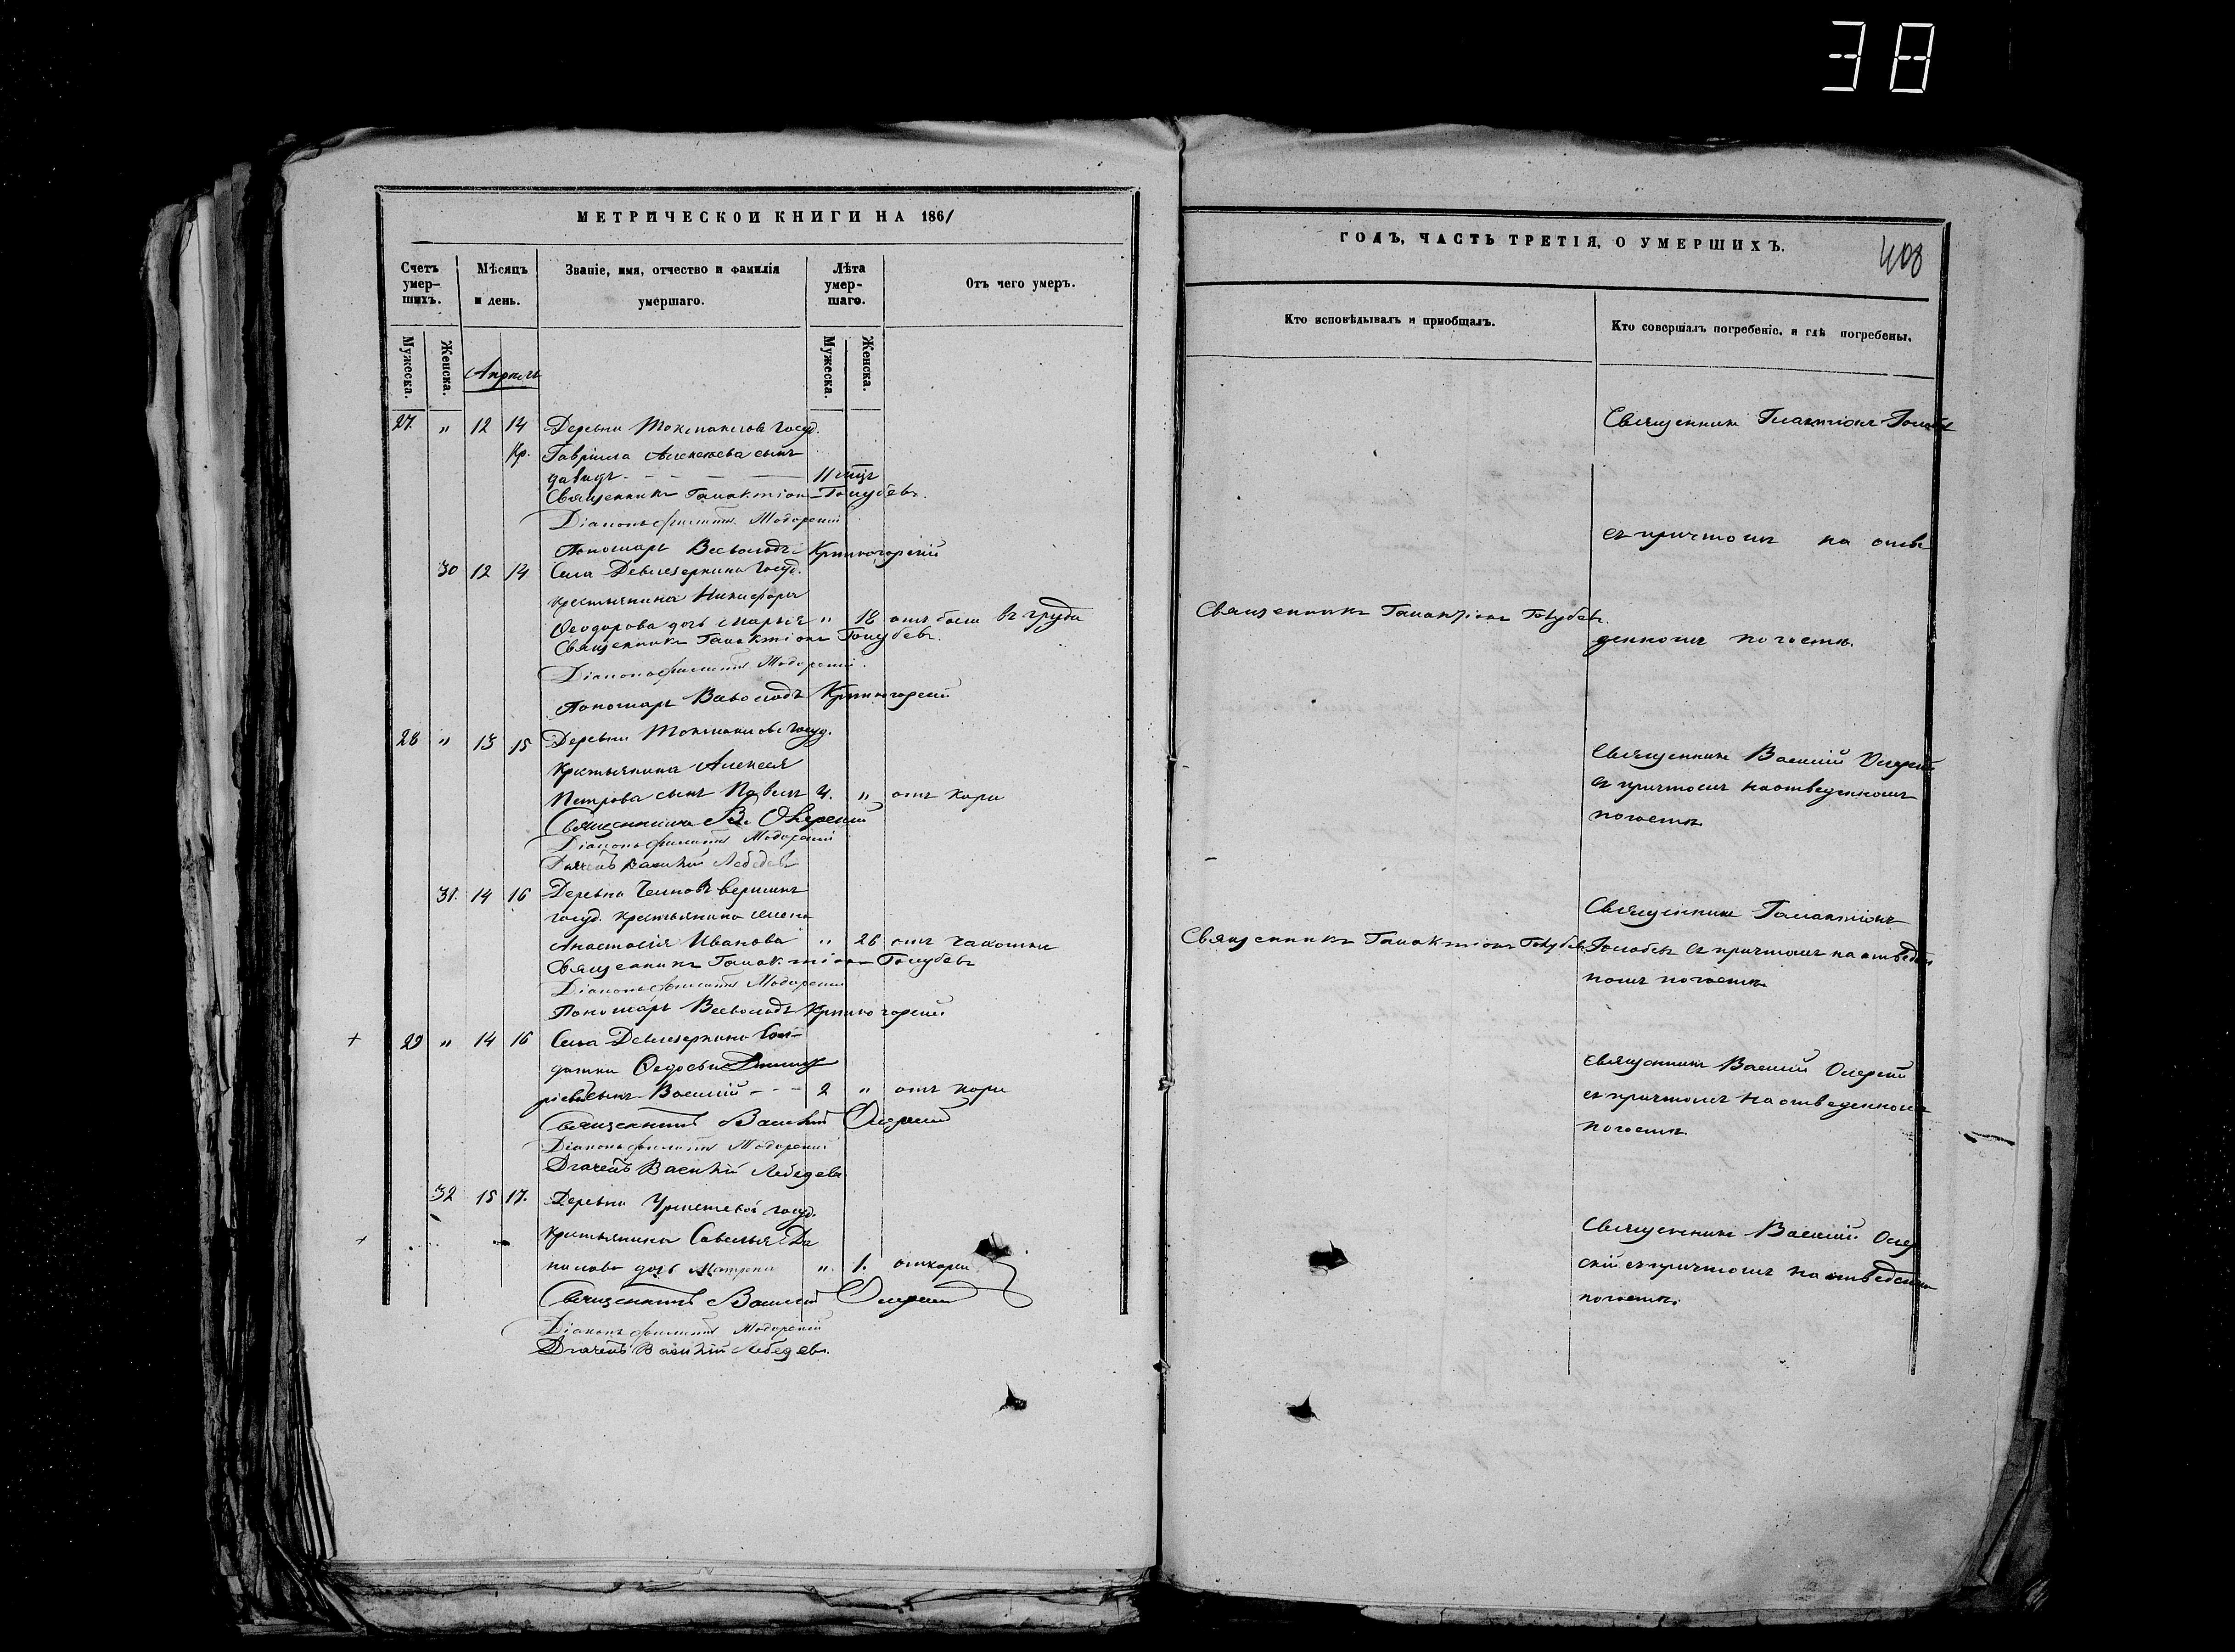 38
МЕТРИЧЕСКОЙ КНИГИ НА 1861
Счетъ умер-шихъ.
Мѣсяцъ и день.
Званіе, имя, отчество и фамилія умершаго.
Лѣта умер-шаго.
Отъ чего умеръ.
Мужеска.
Женска.
Апрель
Мужеска.
Женска.
27 " 12 14 Деревни Токмаклов Госуд.
Кр. Гавріила Алексеева сынъ
Давидъ - - - 11 мцъ
Священникъ Галактіонъ Голубевъ.
Діаконъ Филиппъ Модорскій
Пономарь Всеволодъ
30 12 14 Села Девлезеркина Госуд.
крестьянина Никифора
Феодорова дочь Марья " 18 отъ боли въ груди
Священникъ Галактіонъ Голубевъ.
Діаконъ Филиппъ Модорскій
Пономарь Всеволодъ
28 " 13 15 Деревни Госуд.
крестьянина Алексея
Петрова сынъ Павелъ 4. " отъ кори
Священникъ
Діаконъ Филиппъ Модорскій
Дьячекъ Василій Лебедевъ
31. 14 16 Деревни Челновъ вершинъ
госуд. крестьянина жена
Анастасія Иванова " 26 отъ чахотки
Священникъ Галактіонъ Голубевъ
Діаконъ Филиппъ Модорскій
Пономарь Всеволодъ
29 " 14 16 Села Девлезеркина Сол-
датки Федосьи Димит
ріевой сынъ Василій - - - 2 " отъ кори
Священникъ Василій
Діаконъ Филиппъ Модорскій
Дьячекъ Василій Лебедевъ
32 15 17. Деревни госуд.
крестьянина Савелья Да
нилова дочь Матрена " 1. отъ кори
Священникъ Василій
Діаконъ Филиппъ Модорскій
Дьячекъ Василій Лебедевъ.
ГОДЪ, ЧАСТЬ ТРЕТІЯ, О УМЕРШИХЪ.
408
Кто исповѣдывалъ и пріобщалъ.
Кто совершалъ погребеніе, и гдѣ погребены.
Священникъ Галактіонъ Голубев
съ причтомъ на отве
Священникъ Галактіонъ Голубевъ.
денномъ погостѣ.
Священникъ Василій
съ причтомъ на отведенномъ
погостѣ
Священникъ Галактіонъ
Священникъ Галактіонъ Голубевъ
Голубевъ съ причтомъ на отведен
номъ погостѣ
Священникъ Василій
съ причтомъ на отведенномъ
погостѣ
Священникъ Василій
скій съ причтомъ на отведенно
погостѣ.